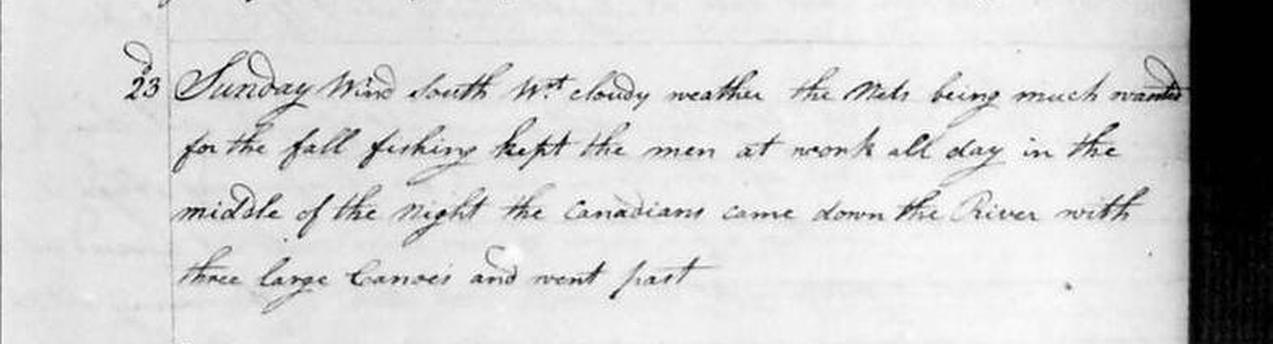 23d Sunday Wind South Wt cloudy weather the Nets being much wanted
for the fall fishing kept the men at work all day in the
middle of the Night the Canadians came down the River with
three large Canoes and went past